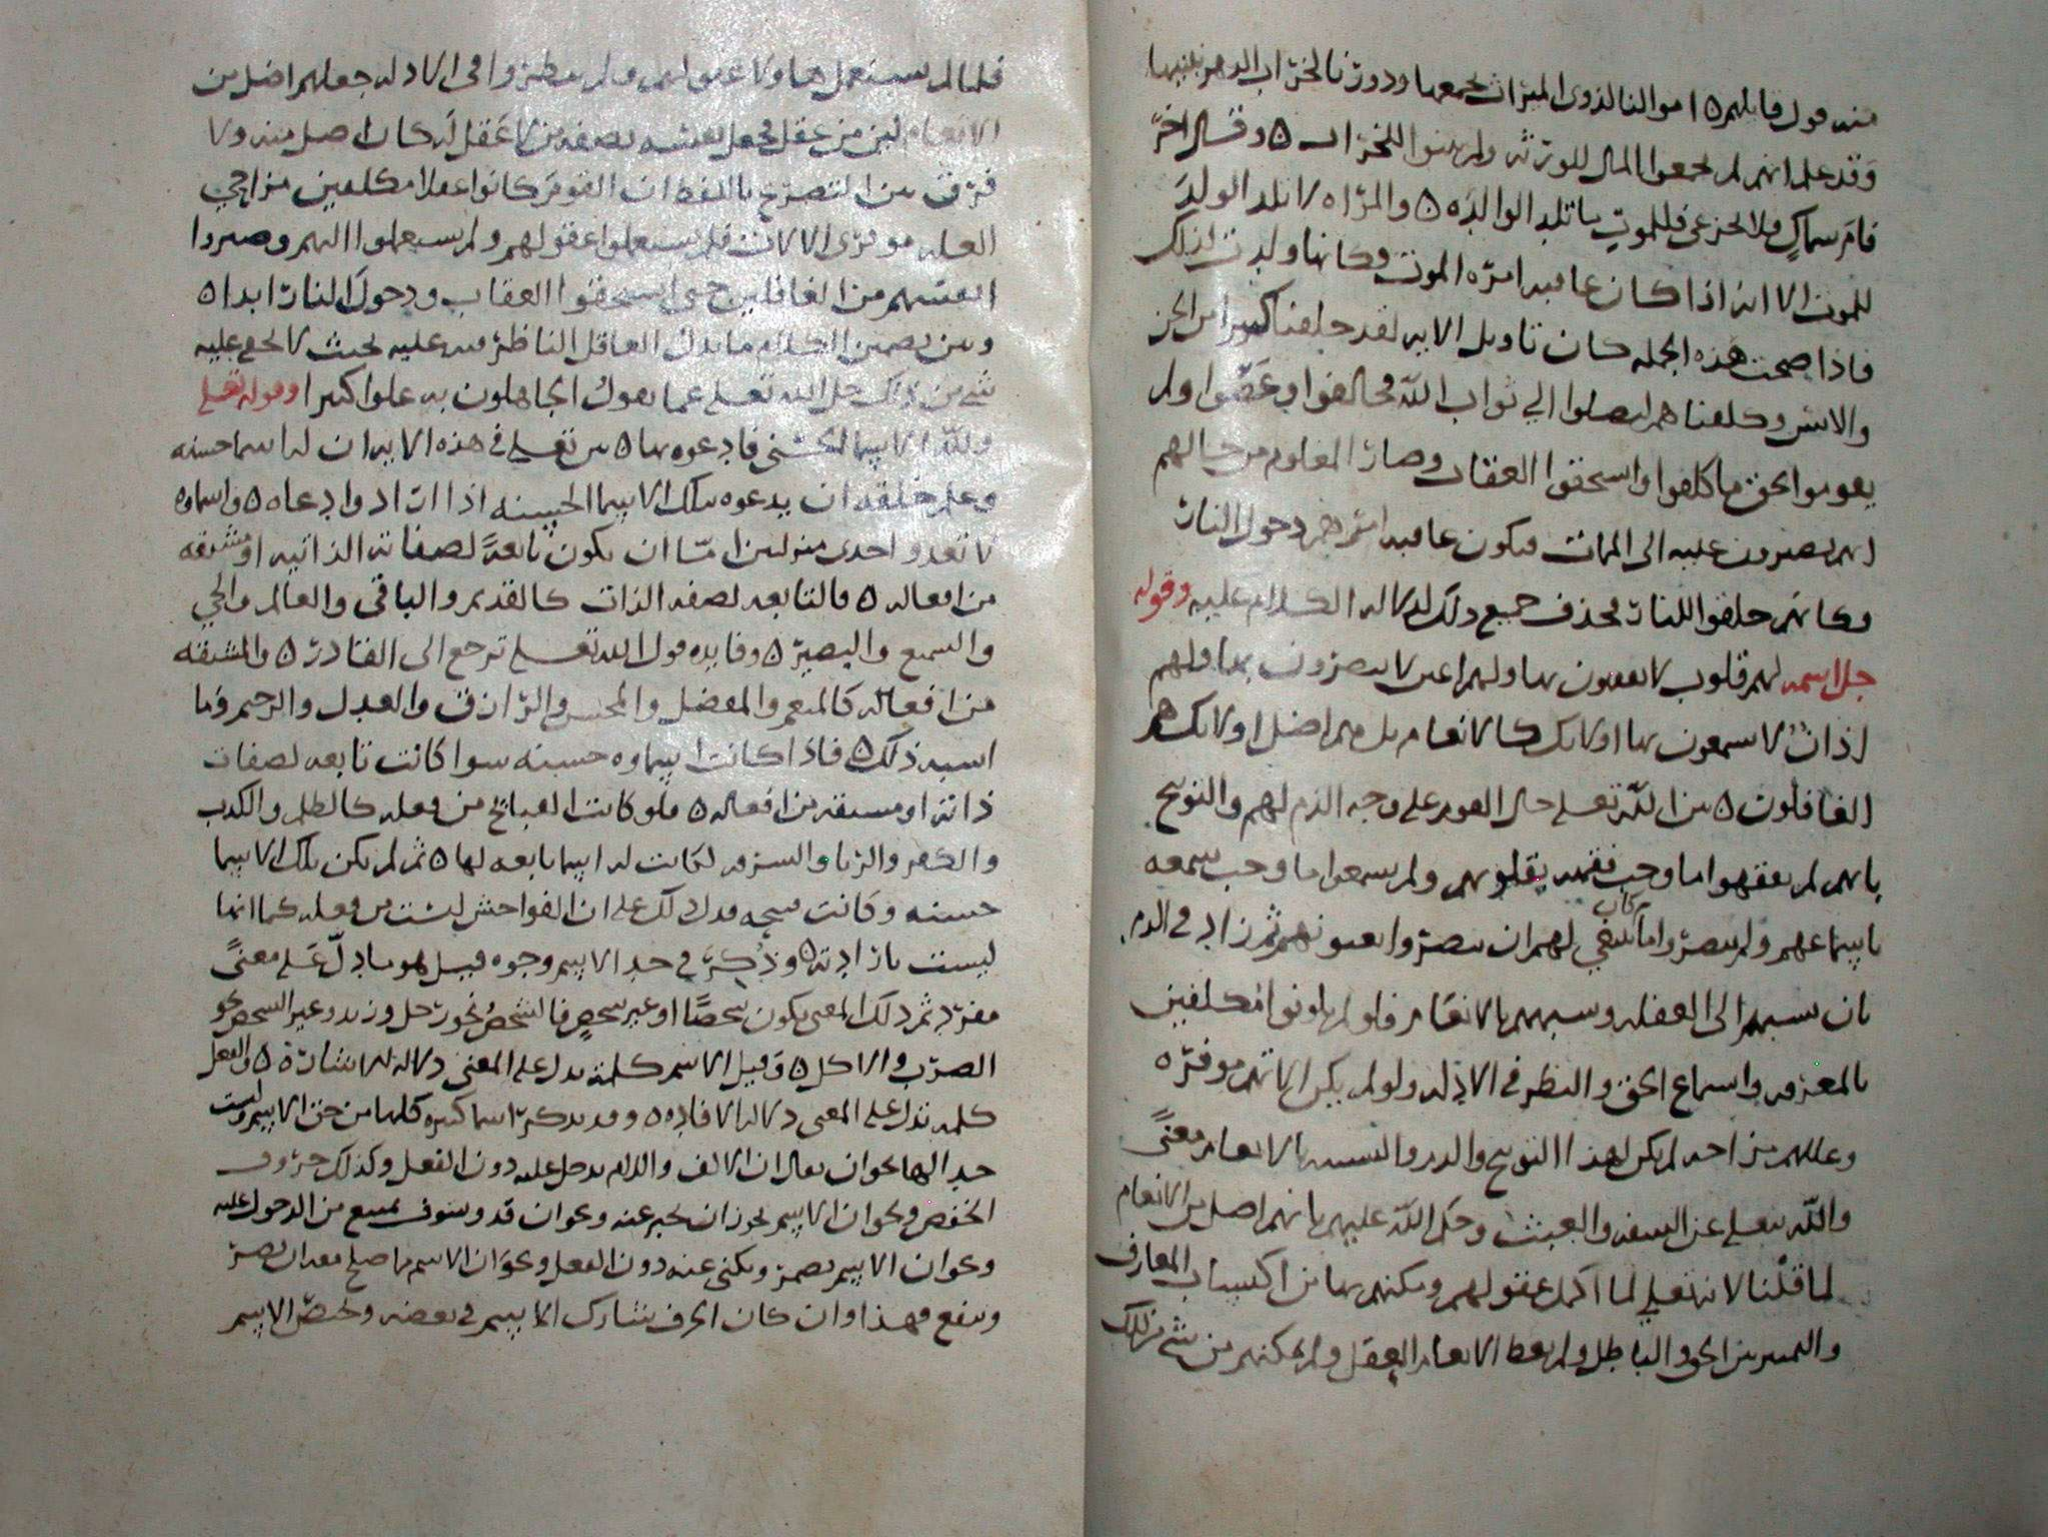 منه قول قايلهم ۵ اموالنا لذوى الميراث نجمعها ودورنا لخراب الدهر نبنيها
وقد علم انهم لم يجمعوا المال للورثه ولم يبنوا للخراب ۵ وقال اخر
فام سماك فلا تجزعى فللموت ما تلد الوالده ۵ والمراه لا تلد الولد
للموت الا انه اذا كان عاقبه امره الموت فكانها ولدت لذلك
فاذا صحت هذه الجمله كان تاويل الايه لقد خلقنا كثيرا من الجن
والانس وكلفناهم ليصلوا الي ثواب الله فخالفوا وعصوا ولم
يقوموا بحق ما كلفوا واستحقوا العقاب وصار المعلوم من حالهم
انهم يصرون عليه الى الممات فيكون عاقبه امرهم دخول النار
وكانهم خلقوا للنار فحذف جميع ذلك لدلاله الكلام عليه وقوله
جل اسمه لهم قلوب لا يفقهون بها ولهم اعين لا يبصرون بها ولهم
اذان لا يسمعون بها اولايك كالانعام بل هم اضل اولايك هم
الغافلون ۵ بين الله تعلى حال القوم على وجه الذم لهم والتوبيخ
بانهم لم يفقهوا ما وجب فقهه بقلوبهم ولم يسمعوا ما وجب سمعه
باسماعهم ولم يبصروا ما كان ينبغي لهم ان يبصروا بعيونهم ثم زاد في الذم
بان نسبهم الى الغفله وشبههم بالانعام فلو لم يكونوا مكلفين
بالمعرفه واسماع الحق والنظر في الادله ولو لم يكن الاتهم موفره
وعللهم مزاحه لم يكن لهذا التوبيخ والذم والتشبيه بالانعام معنىً
والله يتعلى عن السفه والعبث وحكم الله عليهم بانهم اضل من الانعام
لما قلنا لانه تعلى لما اكمل عقولهم ومكنهم بها من اكتساب المعارف
والتمييز بين الحق والباطل ولم يعط الانعام العقل ولم يمكنهم من شي من ذلك
فلما لم يستعملوها ولا عقولهم ولم ينظروا في الادله جعلهم اضل من
الانعام لان من عقل فجعل نفسه بصفه من لا عقل له كان اضل منه ولا
فرق بين التصريح باللفظ ان القوم كانوا عقلا مكلفين مزاحي
العله موفرى الالات فلم يستعملوا عقولهم ولم يستعملوا الاتهم وصيروا
انفسهم من الغافلين حتى استحقوا العقاب ودخول النار ابدا ۵
وبين تضمين الكلام ما يدل العاقل الناظر فيه عليه بحيث لا يخفى عليه
شي من ذلك جل الله تعلى عما يقول الجاهلون به علوا كبيرا وقوله تعلى
ولله الاسما الحسنى فادعوه بها ۵ بين تعلى في هذه الايه ان له اسما حسنه
وعلم خلقه ان يدعوه بتلك الاسما الحسنه اذا ارادوا دعاه ۵ واسماوه
لا تعدوا احدى منزلتين اما ان يكون تابعةً لصفاته الذاتيه او مشتقه
من افعاله ۵ فالتابعه لصفه الذات كالقديم والباقى والعالم والحي
والسميع والبصير ۵ وفايده قول الله تعلى ترجع الى القادر ۵ والمشتقه
من افعاله كالمنعم والمفضل والمحسن والرازق والعدل والرحيم وما
اشبه ذلك ۵ فاذا كانت اسماوه حسنه سوا كانت تابعه لصفات
ذاته او مشتقه من افعاله ۵ فلو كانت القبايح من فعله كالظلم والكذب
والكفر والزنا والسرقه لكانت له اسما تابعه لها ۵ ثم لم يكن تلك الاسما
حسنه وكانت قبيحه فدل ذلك على ان الفواحش ليست من فعله كما انها
ليست بارادته ۵ وذُكر في حد الاسم وجوه قيل هو ما دلّ على معنىً
مفرد ثم ذلك المعنى يكون شخصًا او غير شخصٍ فالشخص نحو رجل وزيد وغير الشخص نحو
الضرب والاكل ۵ وقيل الاسم كلمة يدل على المعنى دلاله الاشارة ۵ والفعل
كلمه تدل على المعنى دلاله الافاده ۵ وقد يذكر اشيا كثيره كلها من حق الاسم وليست
حدا لها نحو ان يقال ان الالف واللام يدخل عليه دون الفعل وكذلك حروف
الخفض ونحو ان الاسم يجوز ان يخبر عنه ونحو ان قد وسوف يمتنع من الدخول عليه
ونحو ان الاسم يضمر ويكنى عنه دون الفعل ونحو ان الاسم ما صلح معه ان يضر
وينفع فهذا وان كان الحرف يشارك الاسم في بعضه ويختص الاسم